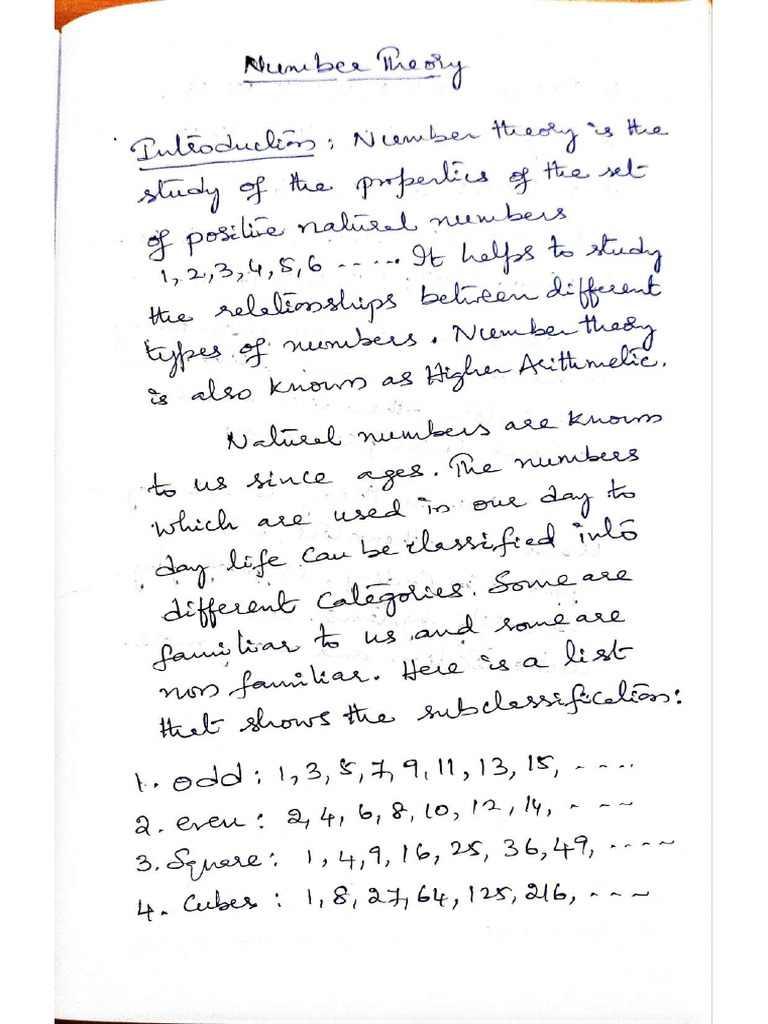 Number Theory
Introduction: Number theory is the
study of the properties of the set
of positive natural numbers
1, 2, 3, 4, 5, 6 ...... It helps to study
the relationships between different
types of numbers. Number theory
is also known as Higher Arithmetic.
Natural numbers are known
to us since ages. The numbers
which are used in our day to
day life can be classified into
different categories. Some are
familiar to us and some are
non familiar. Here is a list
that shows the subclassification:
1. odd: 1, 3, 5, 7, 9, 11, 13, 15, .....
2. even: 2, 4, 6, 8, 10, 12, 14, ....
3. Square: 1, 4, 9, 16, 25, 36, 49, .....
4. Cubes: 1, 8, 27, 64, 125, 216, ....